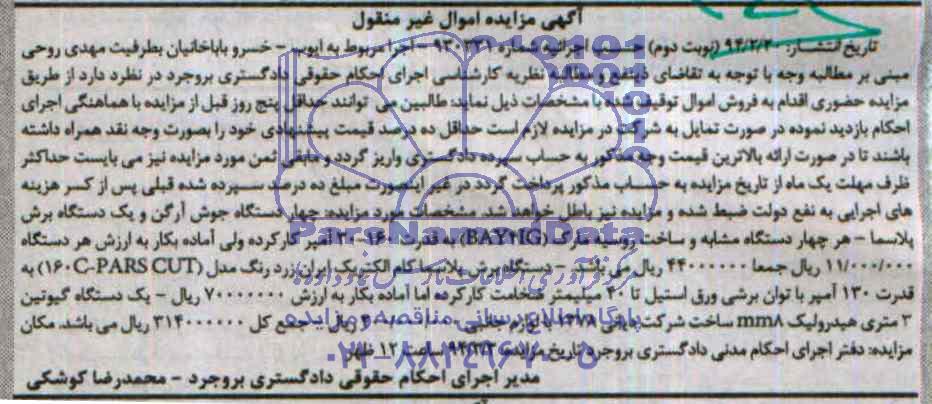 آگهی مزایده اموال غیر منقول
تاریخ انتشار: ۹۴/۲/۲۰ (نوبت دوم) حسب اجرائیه شماره ۹۳۰۳۳۱ - اجرا مربوط به ایوب - خسرو باباخانیان بطرفیت مهدی روحی
مبنی بر مطالبه وجه با توجه به تقاضای ذینفع و مطالبه نظریه کارشناسی اجرای احکام حقوقی دادگستری بروجرد در نظرد دارد از طریق
مزایده حضوری اقدام به فروش اموال توقیف شده با مشخصات ذیل نماید: طالبین می توانند حداقل پنج روز قبل از مزایده با هماهنگی اجرای
احکام بازدید نموده در صورت تمایل به شرکت در مزایده لازم است حداقل ده درصد قیمت پیشنهادی خود را بصورت وجه نقد همراه داشته
باشند تا در صورت ارائه بالاترین قیمت وجه مذکور به حساب سپرده دادگستری واریز گردد و مابقی ثمن مورد مزایده نیز می بایست حداکثر
ظرف مهلت یک ماه از تاریخ مزایده به حساب مذکور پرداخت گردد در غیر اینصورت مبلغ ده درصد سپرده شده قبلی پس از کسر هزینه
های اجرایی به نفع دولت ضبط شده و مزایده نیز باطل خواهد شد. مشخصات مورد مزایده: چهار دستگاه جوش آرگن و یک دستگاه برش
پلاسما - هر چهار دستگاه مشابه و ساخت روسیه مارک به قدرت آمپر کارکرده ولی آماده بکار به ارزش هر دستگاه
۱۱/۰۰۰/۰۰۰ ریال جمعا ۴۴۰۰۰۰۰۰ ریال می باشد. - دستگاه برش پلاسما کام الکتریک ایران زرد رنگ مدل (۱۶۰C-PARS CUT) به
قدرت ۱۳۰ آمپر با توان برشی ورق استیل تا ۴۰ میلیمتر ضخامت کارکرده اما آماده بکار به ارزش ۷۰۰۰۰۰۰۰ ریال - یک دستگاه گیوتین
۳ متری هیدرولیک mm۸ ساخت شرکت با لوازم جانبی ریال - جمع کل ۳۱۴۰۰۰۰۰۰ ریال می باشد. مکان
مزایده: دفتر اجرای احکام مدنی دادگستری بروجرد تاریخ مزایده: ساعت ۱۲ ظهر
مدیر اجرای احکام حقوقی دادگستری بروجرد - محمدرضا کوشکی
ParsNamadData
گردآوری اطلاعات پارس نماد داده ها
پایگاه اطلاع رسانی مناقصه و مزایده
۰۲۱-۸۸۳۴۹۶۷۰